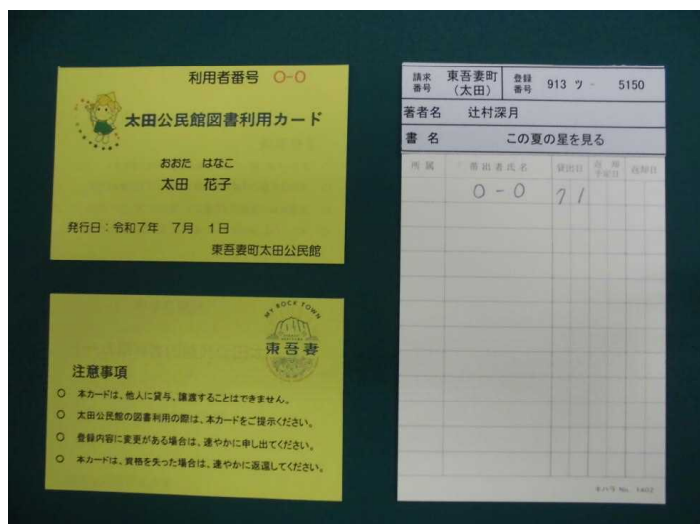 利用者番号 〇-〇
太田公民館図書利用カード
おおた はなこ
太田 花子
発行日:令和7年 7月 1日
東吾妻町太田公民館
MY ROCK TOWN
東吾妻
注意事項
〇 本カードは、他人に貸与、譲渡することはできません。
〇 太田公民館の図書利用の際は、本カードをご提示ください。
〇 登録内容に変更がある場合は、速やかに申し出てください。
〇 本カードは、資格を失った場合は、速やかに返還してください。
請求番号 東吾妻町(太田) 登録番号 913 ツ - 5150
著者名 辻村深月
書名 この夏の星を見る
所属 帯出者氏名 貸出日 返却予定日 返却日
〇-〇 7 1
キハラ No. 1402